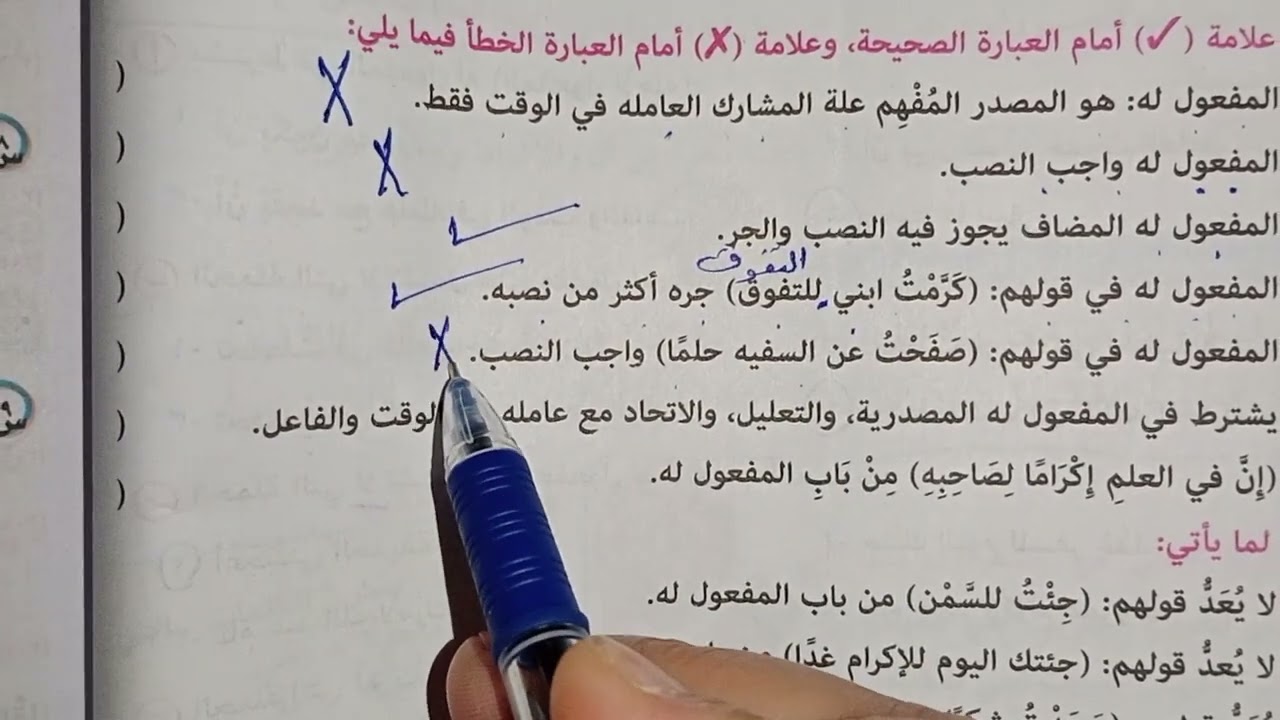 علامة (✓) أمام العبارة الصحيحة، وعلامة (✗) أمام العبارة الخطأ فيما يلي:
المفعول له: هو المصدر المُفْهِم علة المشارك العامله في الوقت فقط. X (
المفعول له واجب النصب. X (
المفعول له المضاف يجوز فيه النصب والجر. ✓ (
التفوق
المفعول له في قولهم: (كَرَّمْتُ ابني للتفوق) جره أكثر من نصبه. ✓ (
المفعول له في قولهم: (صَفَحْتُ عن السفيه حلمًا) واجب النصب. X (
يشترط في المفعول له المصدرية، والتعليل، والاتحاد مع عامله الوقت والفاعل. (
(إِنَّ في العلمِ إِكْرَامًا لِصَاحِبِهِ) مِنْ بَابِ المفعول له. (
لما يأتي:
لا يُعَدُّ قولهم: (جِئْتُ للسَّمْن) من باب المفعول له.
لا يُعدُّ قولهم: (جئتك اليوم للإكرام غدًا)
س٨
س٩